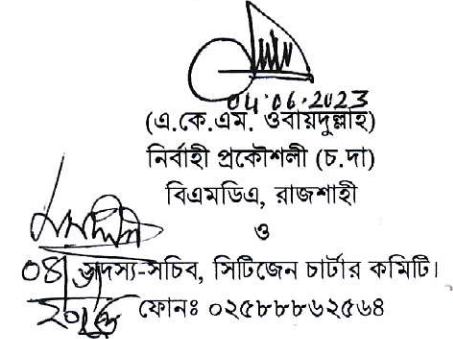 04.06.2023
(এ.কে.এম. ওবায়দুল্লাহ)
নির্বাহী প্রকৌশলী (চ.দা)
বিএমডিএ, রাজশাহী
ও
সদস্য-সচিব, সিটিজেন চার্টার কমিটি।
ফোনঃ ০২৫৮৮৮৬২৫৬৪